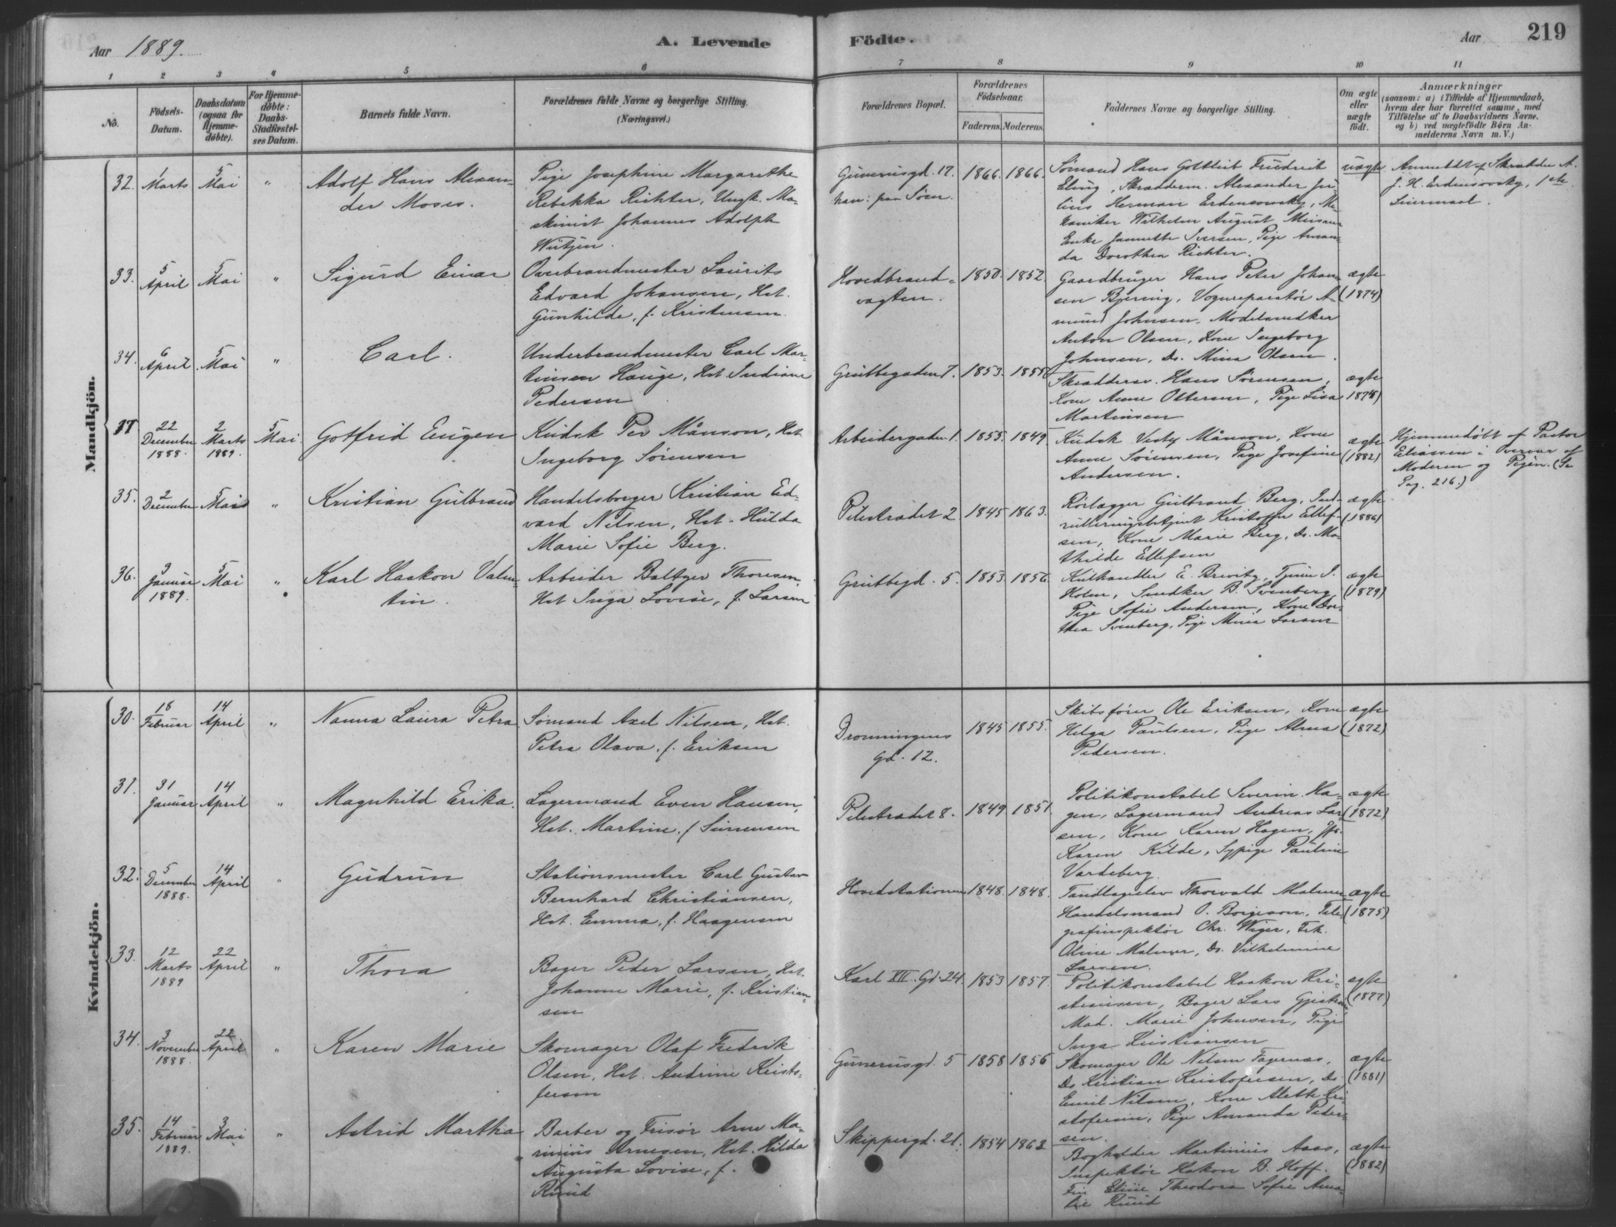 Aar 1889.
A. Levende Fødte.
Aar 219
1 2 3 4 5 6 7 8 9 10 11
No.
Fødsels-Datum.
Daabsdatum (ogsaa for Hjemmedøbte).
For Hjemmedøbte: Daabs-Stadfæstelses Datum.
Barnets fulde Navn.
Forældrenes fulde Navne og borgerlige Stilling. (Næringsvei.)
Forældrenes Bopæl.
Forældrenes Fødselsaar.
Faderens. Moderens.
Faddernes Navne og borgerlige Stilling.
Om ægte eller uægte født.
Anmærkninger
(saasom: a) i Tilfælde af Hjemmedaab,
hvem der har forrettet samme, med
Tilføielse af to Daabsvidners Navne,
og b) ved uægtefødte Børn Anmelderens Navn m. V.)
Mandkjön.
32. Marts 5 Mai "
Adolf Hans Alexander Moses.
Pige Josephine Margarethe
Rebekka Richter, Ungk. Maskinist Johannes Adolph
Günerusgd. 17.
1866. 1866.
Sömand Hans Gottlieb Friedrich
Skræderm. Alexander Julius Herman
Wilhelm August
Enke Iversen, Pige Amanda Dorothea Richter.
uægte
Anmeldt af Skræder A.
J. H.
33. 5 April 5 Mai "
Sigurd Einar
Overbrandmester Laurits
Edvard Johansen, Hst.
Gunhilde, f. Kristensen
Hovedbrandvagten.
1850. 1852.
Gaardbruger Hans Peter Johansen
Bjering, Vognreparatör Amund Johnsen, Modelsnedker
Anton Olsen, Kone Ingeborg
Johnsen, Do. Mina Olsen.
ægte (1874)
34. 6 April 5 Mai "
Carl.
Underbrandmester Carl Martinsen Hauge, Hst. Indiane
Pedersen
Grüttegaden 7.
1853. 1855
Skræddersv. Hans Sörensen,
Kone Anne Ottersen, Pige Lisa
Martinsen
ægte 1878)
37 22 December 1888. 2 Marts 1889. 5 Mai
Gotfrid Eugen
Kudsk Per Månson, Hst.
Ingeborg Sörensen
Arbeidergaden 1.
1853. 1849.
Kudsk Månson, Kone
Anne Sörensen, Pige Josefine
Andersen.
ægte (1882)
Hjemmedöbt af Pastor
Eliassen i Overvær af
Moderen og Pigen. (Se
Pag. 216.)
35. 2 December 5 Mai "
Kristian Gulbrand
Handelsborger Kristian Edvard Nilsen, Hst. Hulda
Marie Sofie Berg.
Pilestrædet 2
1845 1863.
Rörlægger Gulbrand Berg,
Kristoffer Ellefsen, Kone Marie Berg, Do. Mathilde Ellefsen
ægte (1886)
36. 3 Januar 1889. 5 Mai "
Karl Haakon Valentin.
Arbeider Baltzer Thoresen,
Hst. Inga Lovise, f. Larsen
Grüttegd. 5.
1853 1856.
Kulhandler E.
Holm, Snedker B. Svenberg,
Pige Sofie Andersen, Kone Dorthea Svenberg, Pige Marie Larsen
ægte (1879)
Kvindekjön.
30. 18 Februar 14 April "
Nanna Laura Petra
Sömand Axel Nilsen, Hst.
Petra Olava, f. Eriksen
Dronningens
gd. 12.
1845 1855.
Skibsförer Ole Eriksen, Kone
Helga Paulsen, Pige Alma
Pedersen.
ægte (1872)
31. 31 Januar 14 April "
Magnhild Erika.
Lagermand Even Hansen,
Hst. Martine, f. Simensen
Pilestrædet 8.
1849 1851
Politikonstabel Severin Hagen, Lagermand Andreas Larsen, Kone Karen Hagen,
Karen Kilde, Sypige Pauline
Vardeberg
ægte (1872)
32. 5 December 1888. 14 April "
Gudrun
Stationsmester Carl Gustav
Bernhard Christiansen,
Hst. Emma, f. Haagensen
Hovedstationen
1848. 1848.
Tandlægeelev Thorvald
Handelsmand O. Borgesen, Telegrafinspektör Chr. Wiger, Frk.
Oline Do. Vilhelmine
Larsen.
ægte (1875)
33. 12 Marts 1889 22 April "
Thora
Bager Peder Larsen, Hst.
Johanne Marie, f. Kristiansen
Karl XII. Gd. 24.
1853 1857.
Politikonstabel Haakon Kristiansen, Bager Lars
Mad. Marie Johnsen, Pige
Inga Kristiansen
ægte (1877)
34. 3 November 1888. 22 April "
Karen Marie
Skomager Olaf Fredrik
Olsen, Hst. Andrine Kristofersen
Günerusgd. 5
1858 1856
Skomager Ole Nilsen
Do. Kristian Kristofersen, Do.
Emil Nilsen, Kone Alette Kristofersen, Pige Amanda Pedersen.
ægte (1881)
35. 14 Februar 1889. 3 Mai "
Astrid Martha
Barber og Frisör Arne Marinius Arnesen, Hst. Hilda
Augusta Lovise, f.
Ruud
Skippergd. 21.
1854 1862.
Bogholder Martinius Aaas,
Inspektör Hakon B. Hoff.
Theodora Sofie Amalie Ruud
ægte (1882)